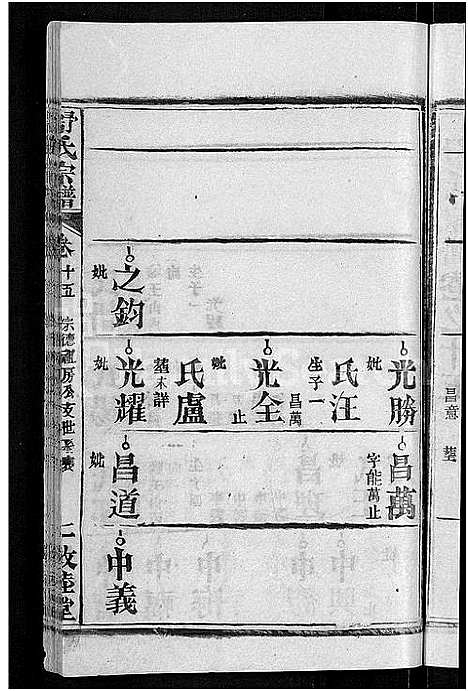 舒氏宗譜
卷十五
宗德
房公支世系表
一
敦睦堂
昌意
葬
光勝
妣
汪氏
生子一
昌萬
光全
止
妣
盧氏
葬未詳
光耀
妣
昌萬
字能萬止
昌道
妣
之鈞
妣
中義